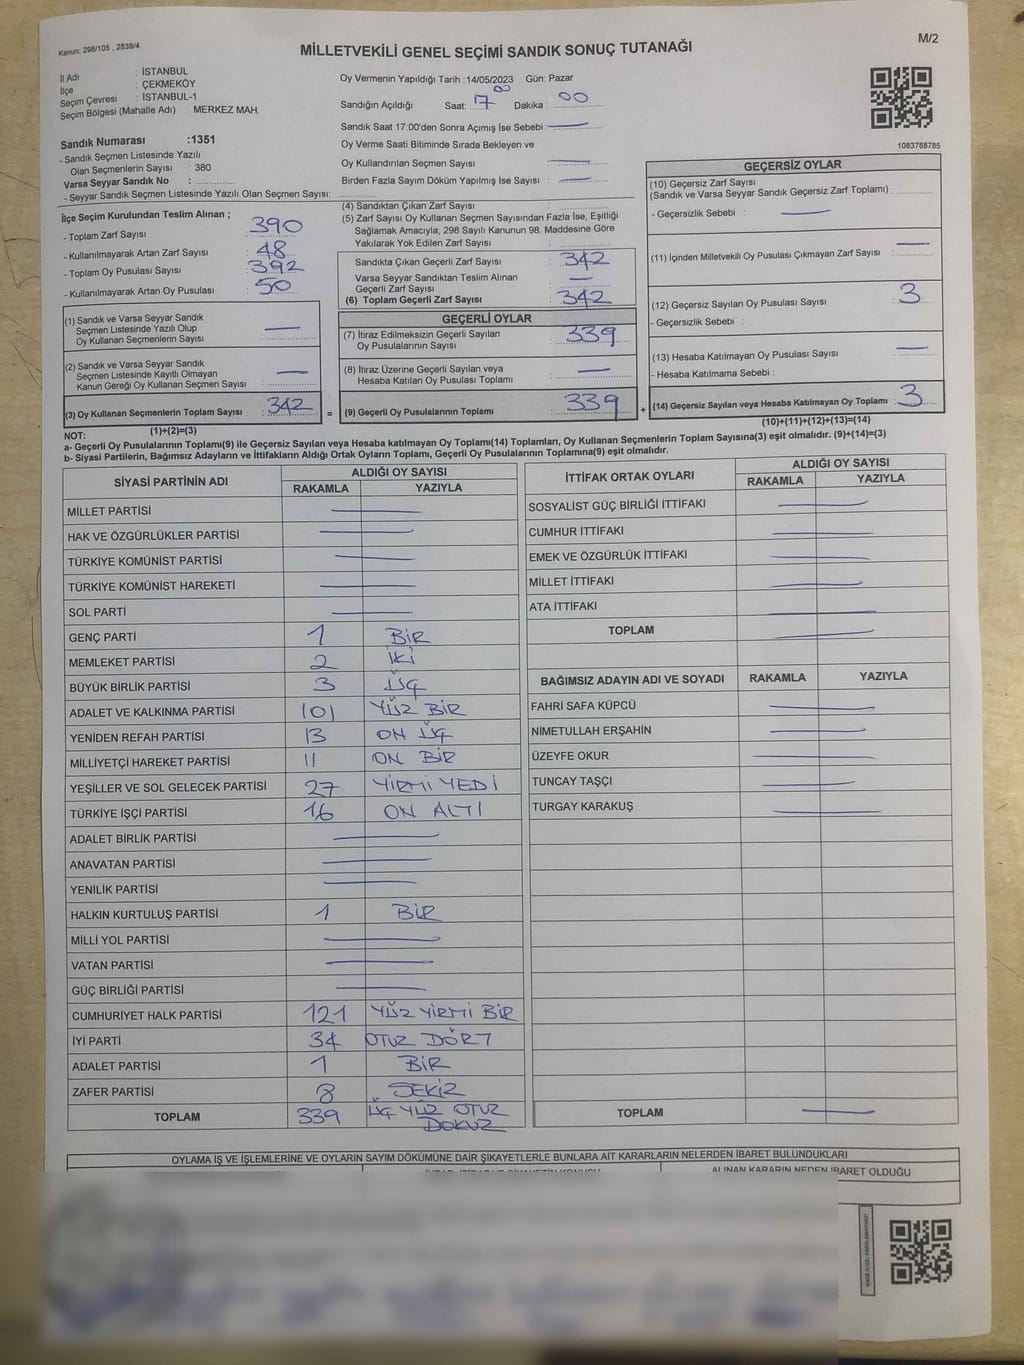 Kanun; 298/105 , 2839/4
M/2
MİLLETVEKİLİ GENEL SEÇİMİ SANDIK SONUÇ TUTANAĞI
İl Adı : İSTANBUL
İlçe : ÇEKMEKÖY
Seçim Çevresi : İSTANBUL-1
Seçim Bölgesi (Mahalle Adı) : MERKEZ MAH.
Sandık Numarası :1351
- Sandık Seçmen Listesinde Yazılı
Olan Seçmenlerin Sayısı : 380
Varsa Seyyar Sandık No :
- Seyyar Sandık Seçmen Listesinde Yazılı Olan Seçmen Sayısı:
Oy Vermenin Yapıldığı Tarih :14/05/2023 Gün: Pazar
Sandığın Açıldığı Saat: 17 00 Dakika : 00
Sandık Saat 17:00'den Sonra Açımış İse Sebebi : —
Oy Verme Saati Bitiminde Sırada Bekleyen ve
Oy Kullandırılan Seçmen Sayısı : —
Birden Fazla Sayım Döküm Yapılmış İse Sayısı : —
1083788785
İlçe Seçim Kurulundan Teslim Alınan ;
- Toplam Zarf Sayısı : 390
- Kullanılmayarak Artan Zarf Sayısı : 48
- Toplam Oy Pusulası Sayısı : 392
- Kullanılmayarak Artan Oy Pusulası : 50
(1) Sandık ve Varsa Seyyar Sandık
Seçmen Listesinde Yazılı Olup
Oy Kullanan Seçmenlerin Sayısı : —
(2) Sandık ve Varsa Seyyar Sandık
Seçmen Listesinde Kayıtlı Olmayan
Kanun Gereği Oy Kullanan Seçmen Sayısı : —
(3) Oy Kullanan Seçmenlerin Toplam Sayısı : 342
(1)+(2)=(3)
(4) Sandıktan Çıkan Zarf Sayısı :
(5) Zarf Sayısı Oy Kullanan Seçmen Sayısından Fazla İse, Eşitliği
Sağlamak Amacıyla, 298 Sayılı Kanunun 98. Maddesine Göre
Yakılarak Yok Edilen Zarf Sayısı :
Sandıkta Çıkan Geçerli Zarf Sayısı : 342
Varsa Seyyar Sandıktan Teslim Alınan
Geçerli Zarf Sayısı : —
(6) Toplam Geçerli Zarf Sayısı : 342
GEÇERLİ OYLAR
(7) İtiraz Edilmeksizin Geçerli Sayılan
Oy Pusulalarının Sayısı : 339
(8) İtiraz Üzerine Geçerli Sayılan veya
Hesaba Katılan Oy Pusulası Toplamı : —
= (9) Geçerli Oy Pusulalarının Toplamı : 339
GEÇERSİZ OYLAR
(10) Geçersiz Zarf Sayısı
(Sandık ve Varsa Seyyar Sandık Geçersiz Zarf Toplamı) :
- Geçersizlik Sebebi : —
(11) İçinden Milletvekili Oy Pusulası Çıkmayan Zarf Sayısı : —
(12) Geçersiz Sayılan Oy Pusulası Sayısı : 3
- Geçersizlik Sebebi :
(13) Hesaba Katılmayan Oy Pusulası Sayısı : —
- Hesaba Katılmama Sebebi :
+ (14) Geçersiz Sayılan veya Hesaba Katılmayan Oy Toplamı : 3
(10)+(11)+(12)+(13)=(14)
NOT:
a- Geçerli Oy Pusulalarının Toplamı(9) ile Geçersiz Sayılan veya Hesaba katılmayan Oy Toplamı(14) Toplamları, Oy Kullanan Seçmenlerin Toplam Sayısına(3) eşit olmalıdır. (9)+(14)=(3)
b- Siyasi Partilerin, Bağımsız Adayların ve İttifakların Aldığı Ortak Oyların Toplamı, Geçerli Oy Pusulalarının Toplamına(9) eşit olmalıdır.
SİYASİ PARTİNİN ADI ALDIĞI OY SAYISI
RAKAMLA YAZIYLA
MİLLET PARTİSİ —
HAK VE ÖZGÜRLÜKLER PARTİSİ —
TÜRKİYE KOMÜNİST PARTİSİ —
TÜRKİYE KOMÜNİST HAREKETİ —
SOL PARTİ —
GENÇ PARTİ 1 BİR
MEMLEKET PARTİSİ 2 İKİ
BÜYÜK BİRLİK PARTİSİ 3 ÜÇ
ADALET VE KALKINMA PARTİSİ 101 YÜZ BİR
YENİDEN REFAH PARTİSİ 13 ON ÜÇ
MİLLİYETÇİ HAREKET PARTİSİ 11 ON BİR
YEŞİLLER VE SOL GELECEK PARTİSİ 27 YİRMİ YEDİ
TÜRKİYE İŞÇİ PARTİSİ 16 ON ALTI
ADALET BİRLİK PARTİSİ —
ANAVATAN PARTİSİ —
YENİLİK PARTİSİ —
HALKIN KURTULUŞ PARTİSİ 1 BİR
MİLLİ YOL PARTİSİ —
VATAN PARTİSİ —
GÜÇ BİRLİĞİ PARTİSİ —
CUMHURİYET HALK PARTİSİ 121 YÜZ YİRMİ BİR
İYİ PARTİ 34 OTUZ DÖRT
ADALET PARTİSİ 1 BİR
ZAFER PARTİSİ 8 SEKİZ
TOPLAM 339 ÜÇ YÜZ OTUZ
DOKUZ
İTTİFAK ORTAK OYLARI ALDIĞI OY SAYISI
RAKAMLA YAZIYLA
SOSYALİST GÜÇ BİRLİĞİ İTTİFAKI —
CUMHUR İTTİFAKI —
EMEK VE ÖZGÜRLÜK İTTİFAKI —
MİLLET İTTİFAKI —
ATA İTTİFAKI —
TOPLAM —
BAĞIMSIZ ADAYIN ADI VE SOYADI RAKAMLA YAZIYLA
FAHRİ SAFA KÜPCÜ —
NİMETULLAH ERŞAHİN —
ÜZEYFE OKUR —
TUNCAY TAŞÇI —
TURGAY KARAKUŞ —
TOPLAM —
OYLAMA İŞ VE İŞLEMLERİNE VE OYLARIN SAYIM DÖKÜMÜNE DAİR ŞİKAYETLERLE BUNLARA AİT KARARLARIN NELERDEN İBARET BULUNDUKLARI
ALINAN KARARIN NEDEN İBARET OLDUĞU